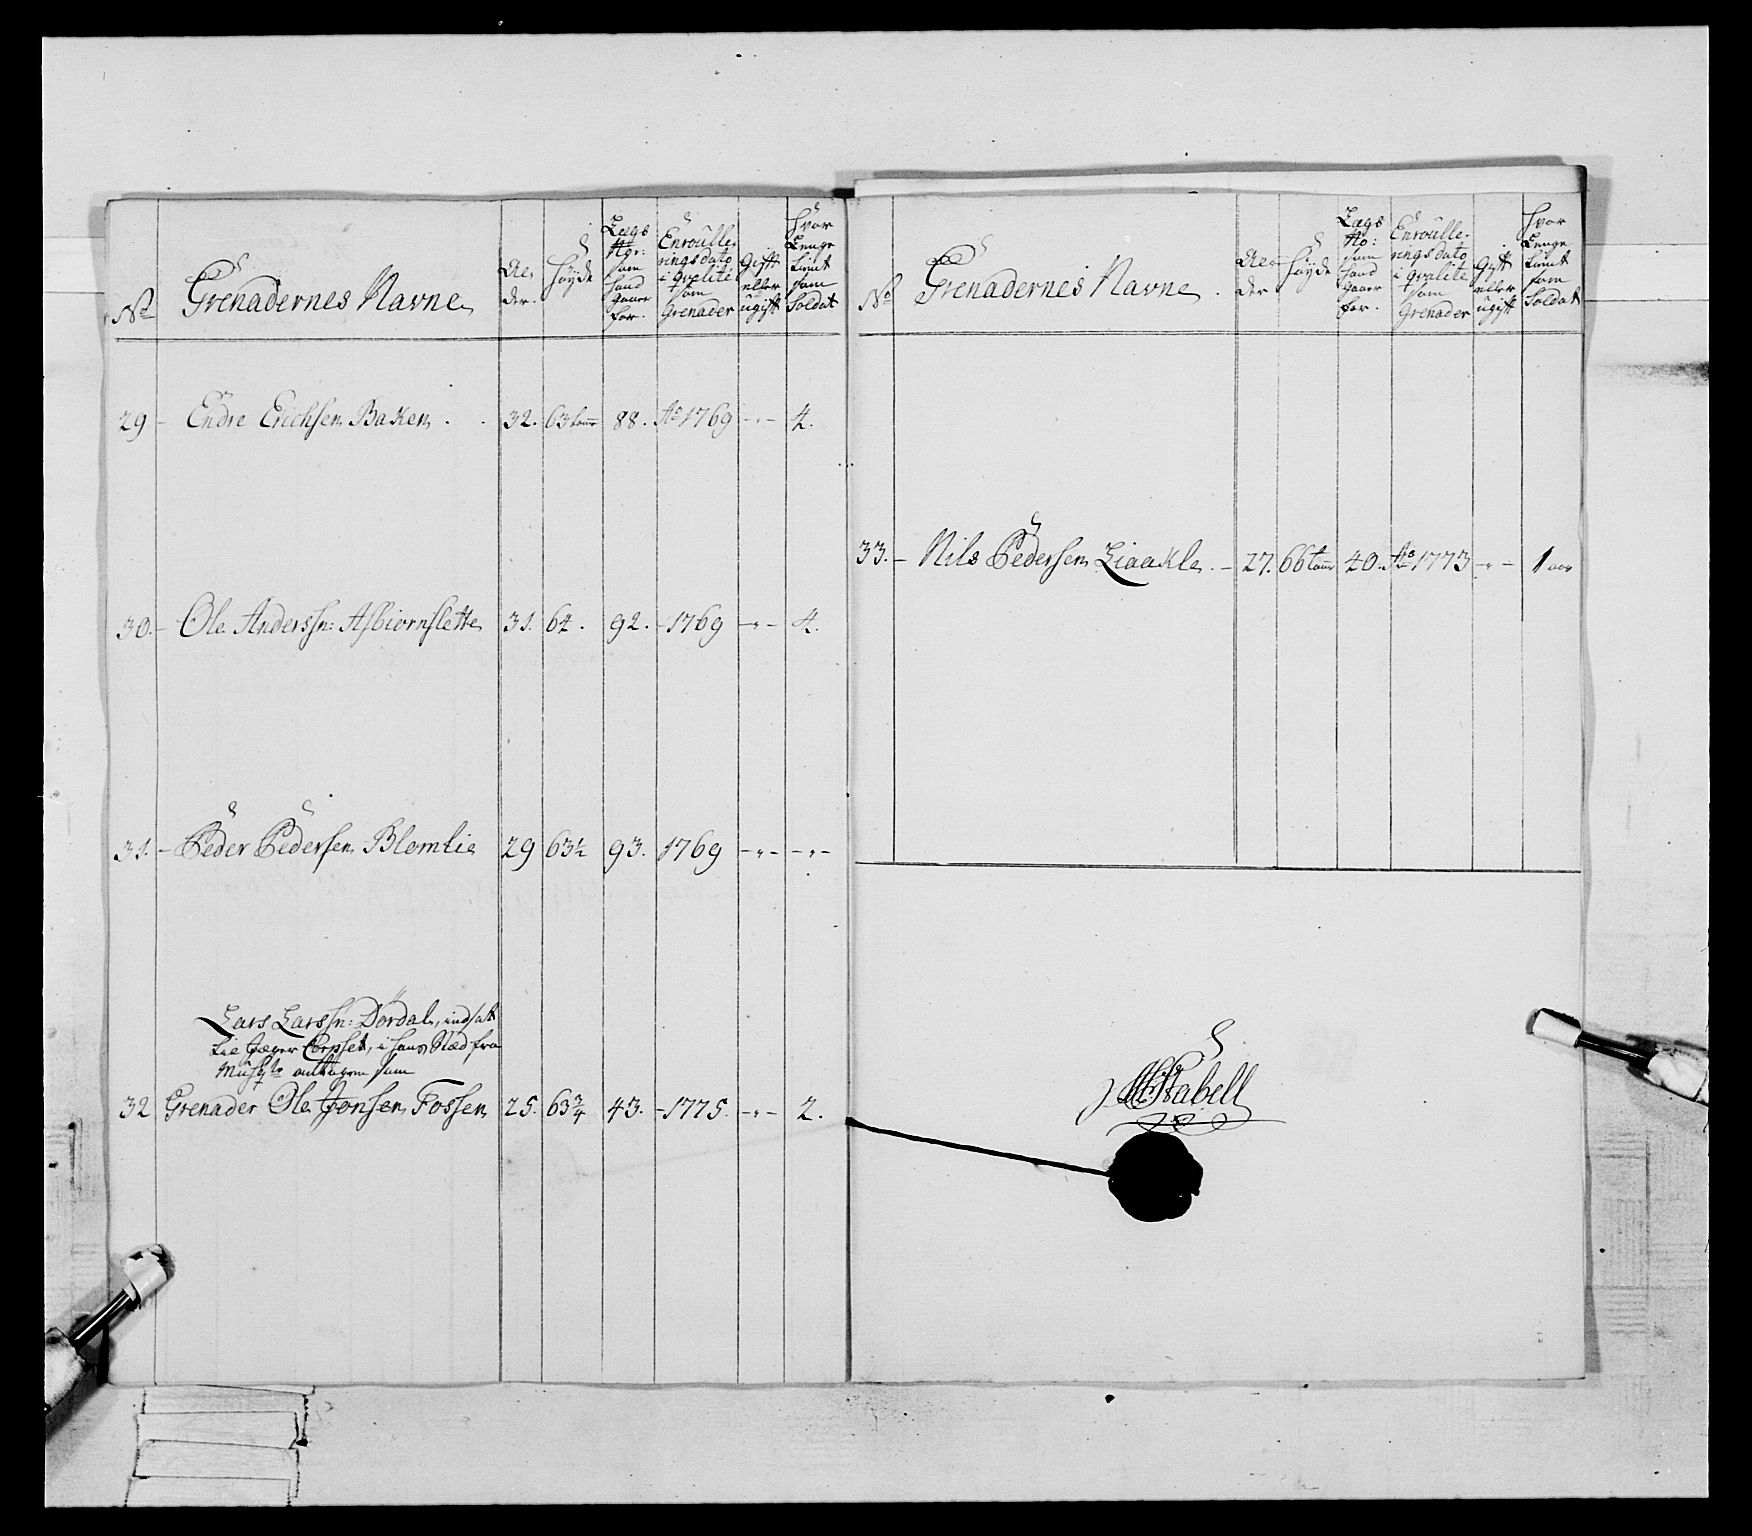 No
Grenadernes Navne
Al-
der.
Høyde
Lægs
No:
som
hand
staaer
for.
Enroulle-
rings dato
i qvalité
som
Grenader
Gift
eller
ugift
hvor
Lenge
tient
som
Soldat
29 - Endre Erichsen Baken . . 32. 63 tom 88. Ao 1769 -"- 4.
30. - Ole Anderssn: Asbiørnslette 31. 64. 92. - 1769 -"- 4.
31. - Peder Pedersen Blomlie 29 63½ 93. 1769 -"- -"-
Lars Larssn: Dørdal, indsatt
ved Jæger Corpset, i hans Stæd fra
antagen som
32 Grenader Ole Jonsen Fossen 25. 63¾ 43. - 1775. -"- 2.
No
Grenadernes Navne.
Al-
der
Høyde
Lægs
No:
som
hand
staaer
for.
Enroulle-
rings dato
i qvalite
som
Grenader
Gift
eller
ugift
hvor
Lenge
tient
som
Soldat
33. - Nils Pedersen Liaakle. - 27. 66 tom 40. Ao 1773 -"- 1 aar
Stabell